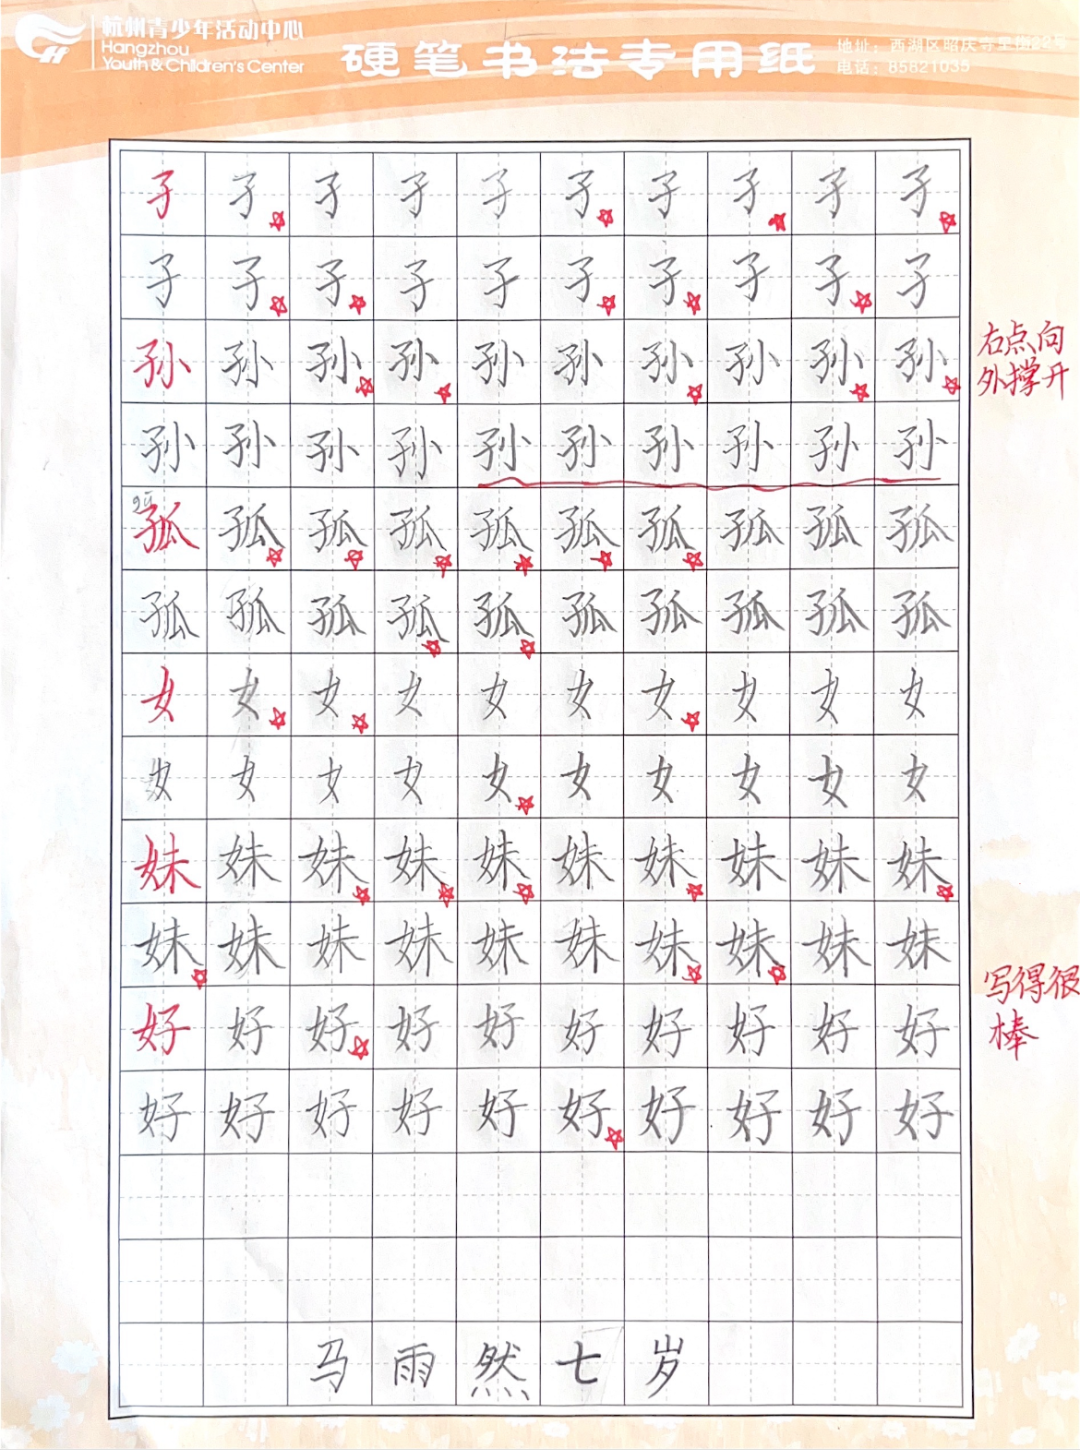 杭州青少年活动中心
Hangzhou
Youth & Children's Center
硬笔书法专用纸
电话：85821035
孑 孑 孑 孑 孑 孑 孑 孑 孑 孑
孑 孑 孑 孑 孑 孑 孑 孑 孑 孑
孙 孙 孙 孙 孙 孙 孙 孙 孙 孙
右点向
外撑开
孙 孙 孙 孙 孙 孙 孙 孙 孙 孙
gū
孤 孤 孤 孤 孤 孤 孤 孤 孤 孤
孤 孤 孤 孤 孤 孤 孤 孤 孤 孤
女 女 女 女 女 女 女 女 女 女
女 女 女 女 女 女 女 女 女 女
妹 妹 妹 妹 妹 妹 妹 妹 妹 妹
妹 妹 妹 妹 妹 妹 妹 妹 妹 妹
写得很
棒
好 好 好 好 好 好 好 好 好 好
好 好 好 好 好 好 好 好 好 好
马 雨 然 七 岁